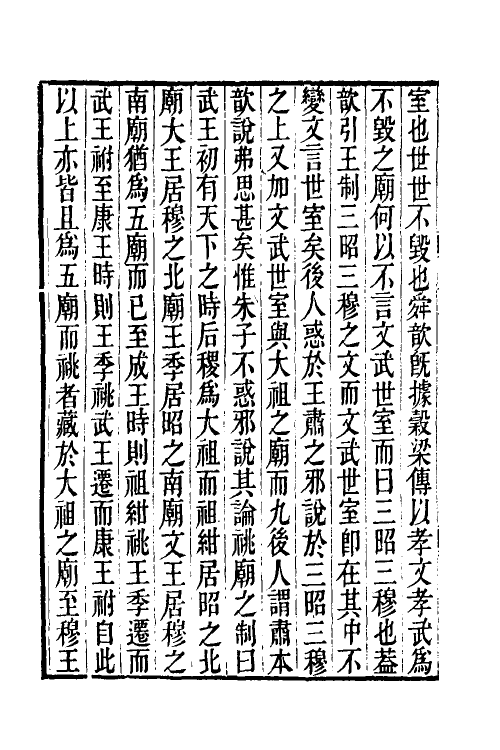 室也世世不毀也舜歆旣據穀梁傳以孝文孝武爲
不毀之廟何以不言文武世室而曰三昭三穆也葢
歆引王制三昭三穆之文而文武世室卽在其中不
變文言世室矣後人惑於王肅之邪說於三昭三穆
之上又加文武世室與大祖之廟而九後人謂肅本
歆說弗思甚矣惟朱子不惑邪說其論祧廟之制曰
武王初有天下之時后稷爲大祖而祖紺居昭之北
廟大王居穆之北廟王季居昭之南廟文王居穆之
南廟猶爲五廟而已至成王時則祖紺祧王季遷而
武王祔至康王時則王季祧武王遷而康王祔自此
以上亦皆且爲五廟而祧者藏於大祖之廟至穆王